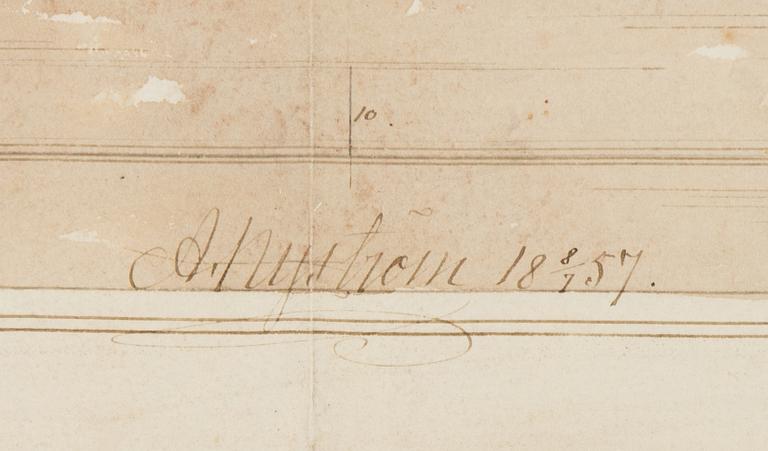 10.
A. Nyström 18 8/7 57.